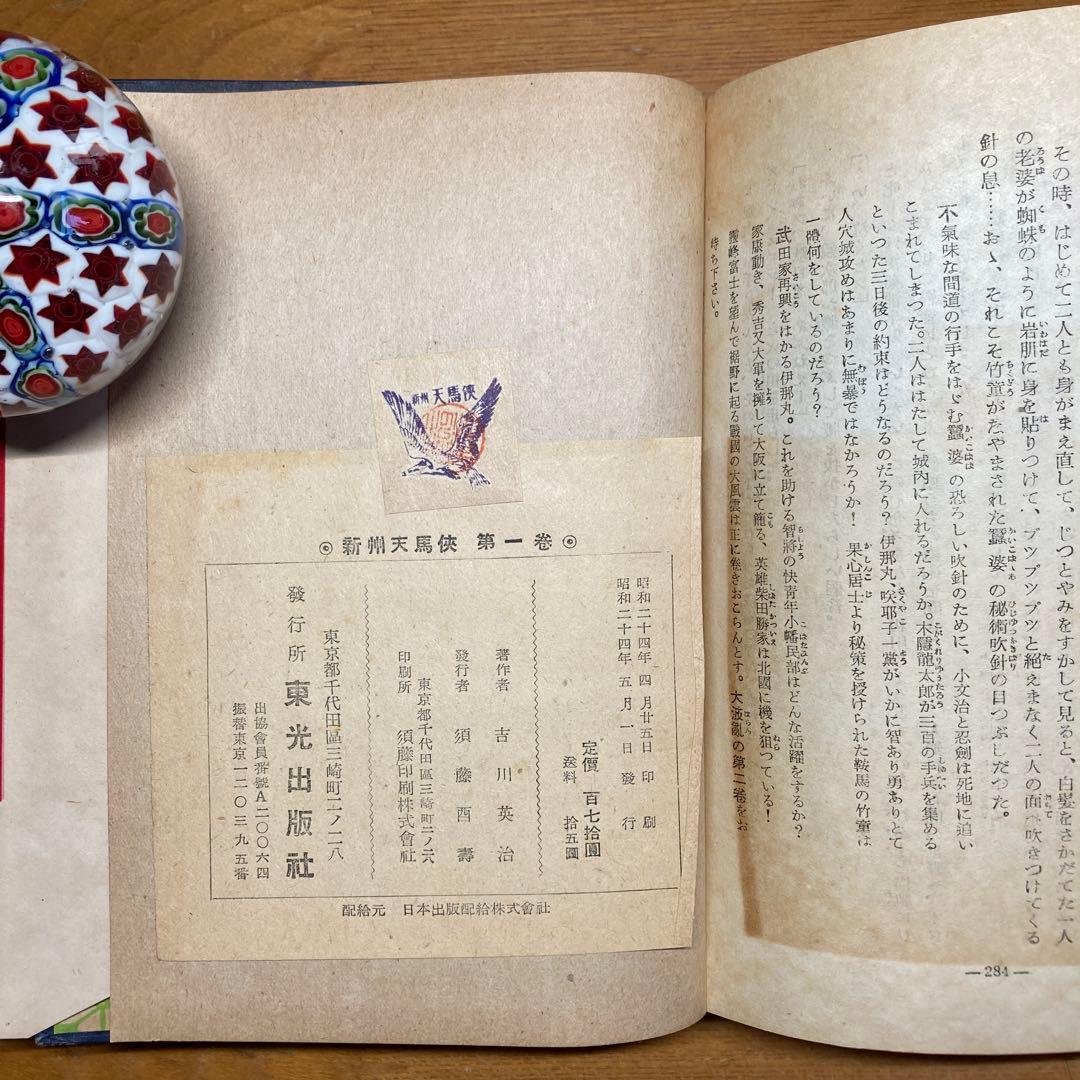 その時、はじめて二人とも身がまえ直して、じつとやみをすかして見ると、白髪をさかだてた一人
の老婆が蜘蛛のように岩肌に身を貼りつけて、プツプツプツと絶えまなく二人の面へ吹きつけてくる
針の息……おゝ、それこそ竹童がたやまされた蠶婆の秘術吹針の目つぶしだつた。
不氣味な間道の行手をはゞむ蠶婆の恐ろしい吹針のために、小文治と忍劍は死地に追い
こまれてしまつた。二人ははたして城内に入れるだろうか。木隱龍太郎が三百の手兵を集める
といつた三日後の約束はどうなるのだろう? 伊那丸、咲耶子一黨がいかに智あり勇ありとて
人穴城攻めはあまりに無暴ではなかろうか! 果心居士より秘策を授けられた鞍馬の竹童は
一體何をしているのだろう?
武田家再興をはかる伊那丸。これを助ける智將の快青年小幡民部はどんな活躍をするか?
家康動き、秀吉又大軍を擁して大阪に立て籠る、英雄柴田勝家は北國に機を狙つている!
靈峰富士を望んで裾野に起る戰國の大風雲は正に卷きおこらんとす。大波亂の第二卷をお
待ち下さい。
—284—
新州 天馬俠
新州天馬俠 第一卷
昭和二十四年四月廿五日印刷
昭和二十四年五月一日發行
定價 百七拾圓
送料 拾五圓
著作者 吉川英治
發行者 須藤酉壽
東京都千代田區三崎町二ノ六
印刷所 須藤印刷株式會社
東京都千代田區三崎町二ノ二八
發行所 東光出版社
出協會員番號A二〇〇六四
振替東京一二〇三九五番
配給元 日本出版配給株式會社